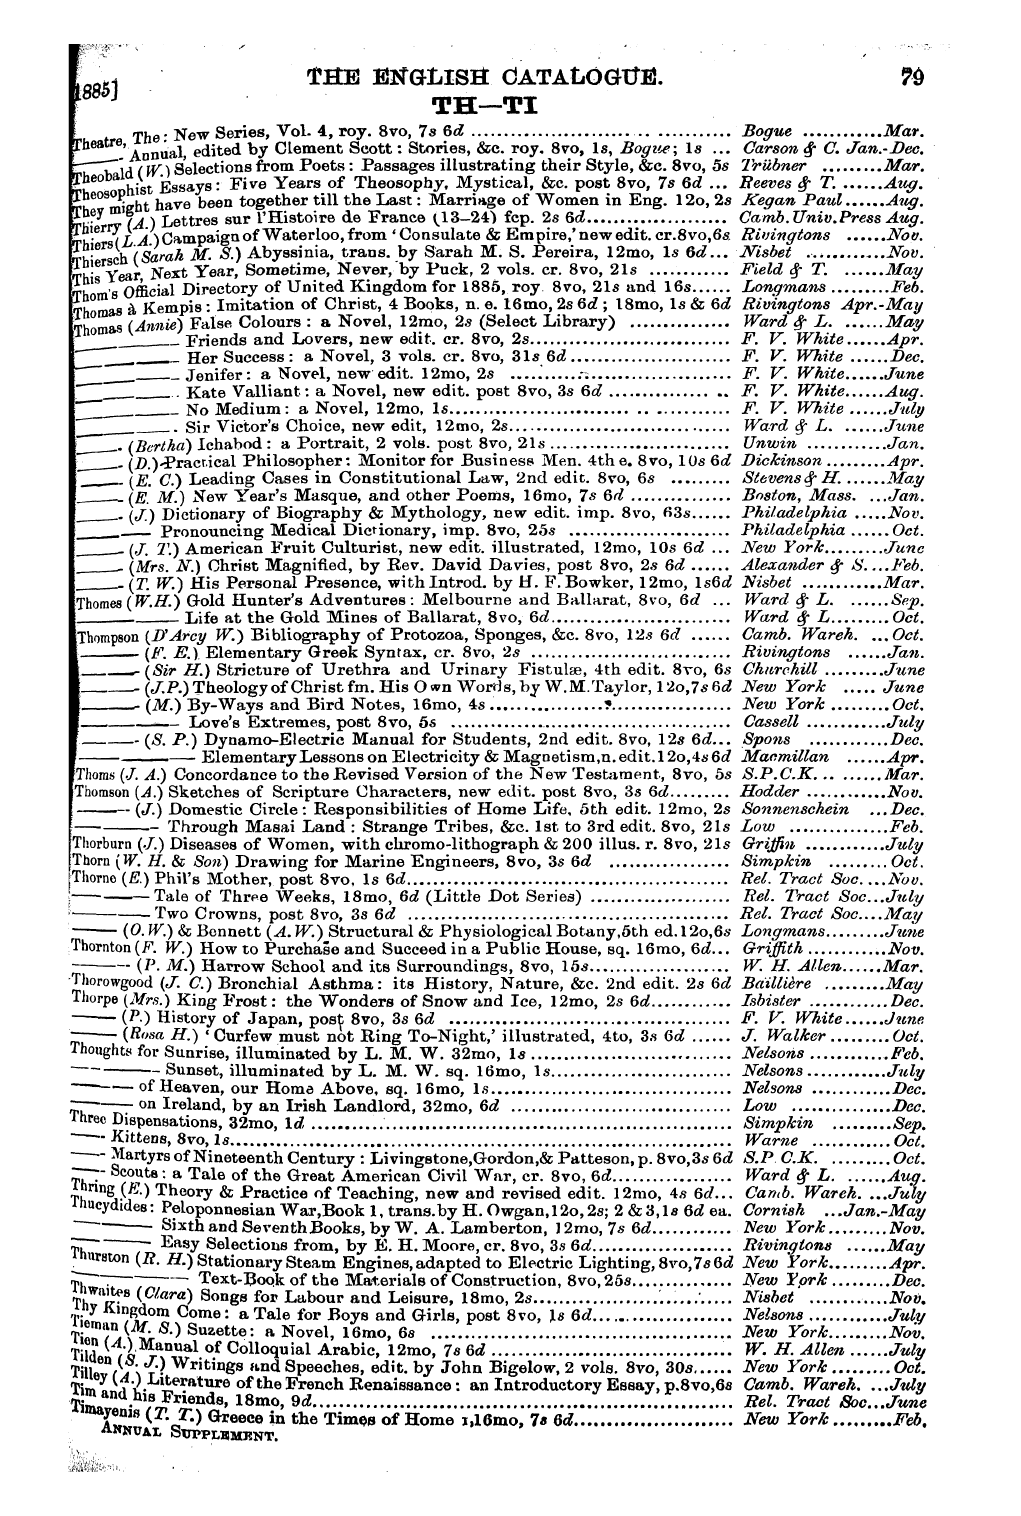 1885] THE ENGLISH CATALOGUE. 79
TH—TI
Theatre, The: New Series, Vol. 4, roy. 8vo, 7s 6d ............ Bogue ............Mar.
——— Annual, edited by Clement Scott: Stories, &c. roy. 8vo, 1s, Bogue; 1s ... Carson & C. Jan.-Dec.
Theobald (W.) Selections from Poets: Passages illustrating their Style, &c. 8vo, 5s Trübner .........Mar.
Theosophist Essays: Five Years of Theosophy, Mystical, &c. post 8vo, 7s 6d ... Reeves & T. ......Aug.
They might have been together till the Last: Marriage of Women in Eng. 12o, 2s Kegan Paul ......Aug.
Thierry (A.) Lettres sur l'Histoire de France (13–24) fcp. 2s 6d..................... Camb. Univ. Press Aug.
Thiers (L.A.) Campaign of Waterloo, from 'Consulate & Empire,' new edit. cr. 8vo, 6s Rivingtons ......Nov.
Thiersch (Sarah M. S.) Abyssinia, trans. by Sarah M. S. Pereira, 12mo, 1s 6d... Nisbet ............Nov.
This Year, Next Year, Sometime, Never, by Puck, 2 vols. cr. 8vo, 21s ............ Field & T. ......May
Thom's Official Directory of United Kingdom for 1885, roy. 8vo, 21s and 16s...... Longmans .........Feb.
Thomas à Kempis: Imitation of Christ, 4 Books, n. e. 16mo, 2s 6d; 18mo, 1s & 6d Rivingtons Apr.-May
Thomas (Annie) False Colours: a Novel, 12mo, 2s (Select Library) ............... Ward & L. ......May
——— Friends and Lovers, new edit. cr. 8vo, 2s.............................. F. V. White......Apr.
——— Her Success: a Novel, 3 vols. cr. 8vo, 31s 6d........................ F. V. White ......Dec.
——— Jenifer: a Novel, new edit. 12mo, 2s .............................. F. V. White......June
——— Kate Valliant: a Novel, new edit. post 8vo, 3s 6d .................. F. V. White......Aug.
——— No Medium: a Novel, 12mo, 1s.............................. F. V. White ......July
——— Sir Victor's Choice, new edit, 12mo, 2s.............................. Ward & L. ......June
——— (Bertha) Ichabod: a Portrait, 2 vols. post 8vo, 21s ........................... Unwin ............Jan.
——— (D.) Practical Philosopher: Monitor for Business Men. 4th e. 8vo, 10s 6d Dickinson .........Apr.
——— (E. C.) Leading Cases in Constitutional Law, 2nd edit. 8vo, 6s ......... Stevens & H. ......May
——— (E. M.) New Year's Masque, and other Poems, 16mo, 7s 6d ............... Boston, Mass. ...Jan.
——— (J.) Dictionary of Biography & Mythology, new edit. imp. 8vo, 63s...... Philadelphia .....Nov.
——— Pronouncing Medical Dictionary, imp. 8vo, 25s ........................ Philadelphia ......Oct.
——— (J. T.) American Fruit Culturist, new edit. illustrated, 12mo, 10s 6d ... New York.........June
——— (Mrs. N.) Christ Magnified, by Rev. David Davies, post 8vo, 2s 6d ...... Alexander & S. ...Feb.
——— (T. W.) His Personal Presence, with Introd. by H. F. Bowker, 12mo, 1s6d Nisbet ............Mar.
Thomes (W.H.) Gold Hunter's Adventures: Melbourne and Ballarat, 8vo, 6d ... Ward & L. ......Sep.
——— Life at the Gold Mines of Ballarat, 8vo, 6d........................... Ward & L.........Oct.
Thompson (D'Arcy W.) Bibliography of Protozoa, Sponges, &c. 8vo, 12s 6d ...... Camb. Wareh. ...Oct.
——— (F. E.) Elementary Greek Syntax, cr. 8vo, 2s .............................. Rivingtons ......Jan.
——— (Sir H.) Stricture of Urethra and Urinary Fistulæ, 4th edit. 8vo, 6s Churchill .........June
——— (J.P.) Theology of Christ fm. His Own Words, by W.M. Taylor, 12o, 7s 6d New York ..... June
——— (M.) By-Ways and Bird Notes, 16mo, 4s .............................. New York .........Oct.
——— Love's Extremes, post 8vo, 5s .............................. Cassell ............July
——— (S. P.) Dynamo-Electric Manual for Students, 2nd edit. 8vo, 12s 6d... Spons ............Dec.
——— Elementary Lessons on Electricity & Magnetism, n. edit. 12o, 4s 6d Macmillan ......Apr.
Thoms (J. A.) Concordance to the Revised Version of the New Testament, 8vo, 5s S.P.C.K. .........Mar.
Thomson (A.) Sketches of Scripture Characters, new edit. post 8vo, 3s 6d......... Hodder ............Nov.
——— (J.) Domestic Circle: Responsibilities of Home Life, 5th edit. 12mo, 2s Sonnenschein ...Dec.
——— Through Masai Land: Strange Tribes, &c. 1st to 3rd edit. 8vo, 21s Low ...............Feb.
Thorburn (J.) Diseases of Women, with chromo-lithograph & 200 illus. r. 8vo, 21s Griffin ............July
Thorn (W. H. & Son) Drawing for Marine Engineers, 8vo, 3s 6d .................. Simpkin .........Oct.
Thorne (E.) Phil's Mother, post 8vo, 1s 6d................................................ Rel. Tract Soc. ...Nov.
——— Tale of Three Weeks, 18mo, 6d (Little Dot Series) ..................... Rel. Tract Soc...July
——— Two Crowns, post 8vo, 3s 6d ................................................ Rel. Tract Soc....May
——— (O. W.) & Bennett (A. W.) Structural & Physiological Botany, 5th ed. 12o, 6s Longmans.........June
Thornton (F. W.) How to Purchase and Succeed in a Public House, sq. 16mo, 6d... Griffith ............Nov.
——— (P. M.) Harrow School and its Surroundings, 8vo, 15s..................... W. H. Allen......Mar.
Thorowgood (J. C.) Bronchial Asthma: its History, Nature, &c. 2nd edit. 2s 6d Baillière .........May
Thorpe (Mrs.) King Frost: the Wonders of Snow and Ice, 12mo, 2s 6d............ Isbister ............Dec.
——— (P.) History of Japan, post 8vo, 3s 6d .......................................... F. V. White......June
——— (Rosa H.) 'Curfew must not Ring To-Night,' illustrated, 4to, 3s 6d ...... J. Walker .........Oct.
Thoughts for Sunrise, illuminated by L. M. W. 32mo, 1s .............................. Nelsons ............Feb.
——— Sunset, illuminated by L. M. W. sq. 16mo, 1s........................... Nelsons ............July
——— of Heaven, our Home Above, sq. 16mo, 1s.................................... Nelsons ............Dec.
——— on Ireland, by an Irish Landlord, 32mo, 6d ................................. Low ...............Dec.
Three Dispensations, 32mo, 1d ............................................................... Simpkin .........Sep.
——— Kittens, 8vo, 1s........................................................................ Warne ............Oct.
——— Martyrs of Nineteenth Century: Livingstone, Gordon, & Patteson, p. 8vo, 3s 6d S.P.C.K. .........Oct.
——— Scouts: a Tale of the Great American Civil War, cr. 8vo, 6d.................. Ward & L. ......Aug.
Thring (E.) Theory & Practice of Teaching, new and revised edit. 12mo, 4s 6d... Camb. Wareh. ...July
Thucydides: Peloponnesian War, Book 1, trans. by H. Owgan, 12o, 2s; 2 & 3, 1s 6d ea. Cornish ...Jan.-May
——— Sixth and Seventh Books, by W. A. Lamberton, 12mo, 7s 6d............ New York.........Nov.
——— Easy Selections from, by E. H. Moore, cr. 8vo, 3s 6d..................... Rivingtons ......May
Thurston (R. H.) Stationary Steam Engines, adapted to Electric Lighting, 8vo, 7s 6d New York.........Apr.
——— Text-Book of the Materials of Construction, 8vo, 25s............... New York .........Dec.
Thwaites (Clara) Songs for Labour and Leisure, 18mo, 2s.............................. Nisbet ............Nov.
Thy Kingdom Come: a Tale for Boys and Girls, post 8vo, 1s 6d..................... Nelsons ............July
Tieman (M. S.) Suzette: a Novel, 16mo, 6s ............................................. New York.........Nov.
Tien (A.) Manual of Colloquial Arabic, 12mo, 7s 6d .................................... W. H. Allen ......July
Tilden (S. J.) Writings and Speeches, edit. by John Bigelow, 2 vols. 8vo, 30s...... New York .........Oct.
Tilley (A.) Literature of the French Renaissance: an Introductory Essay, p. 8vo, 6s Camb. Wareh. ...July
Tim and his Friends, 18mo, 9d............................................................... Rel. Tract Soc...June
Timayenis (T. T.) Greece in the Times of Home 1, 16mo, 7s 6d........................ New York .........Feb.
ANNUAL SUPPLEMENT.